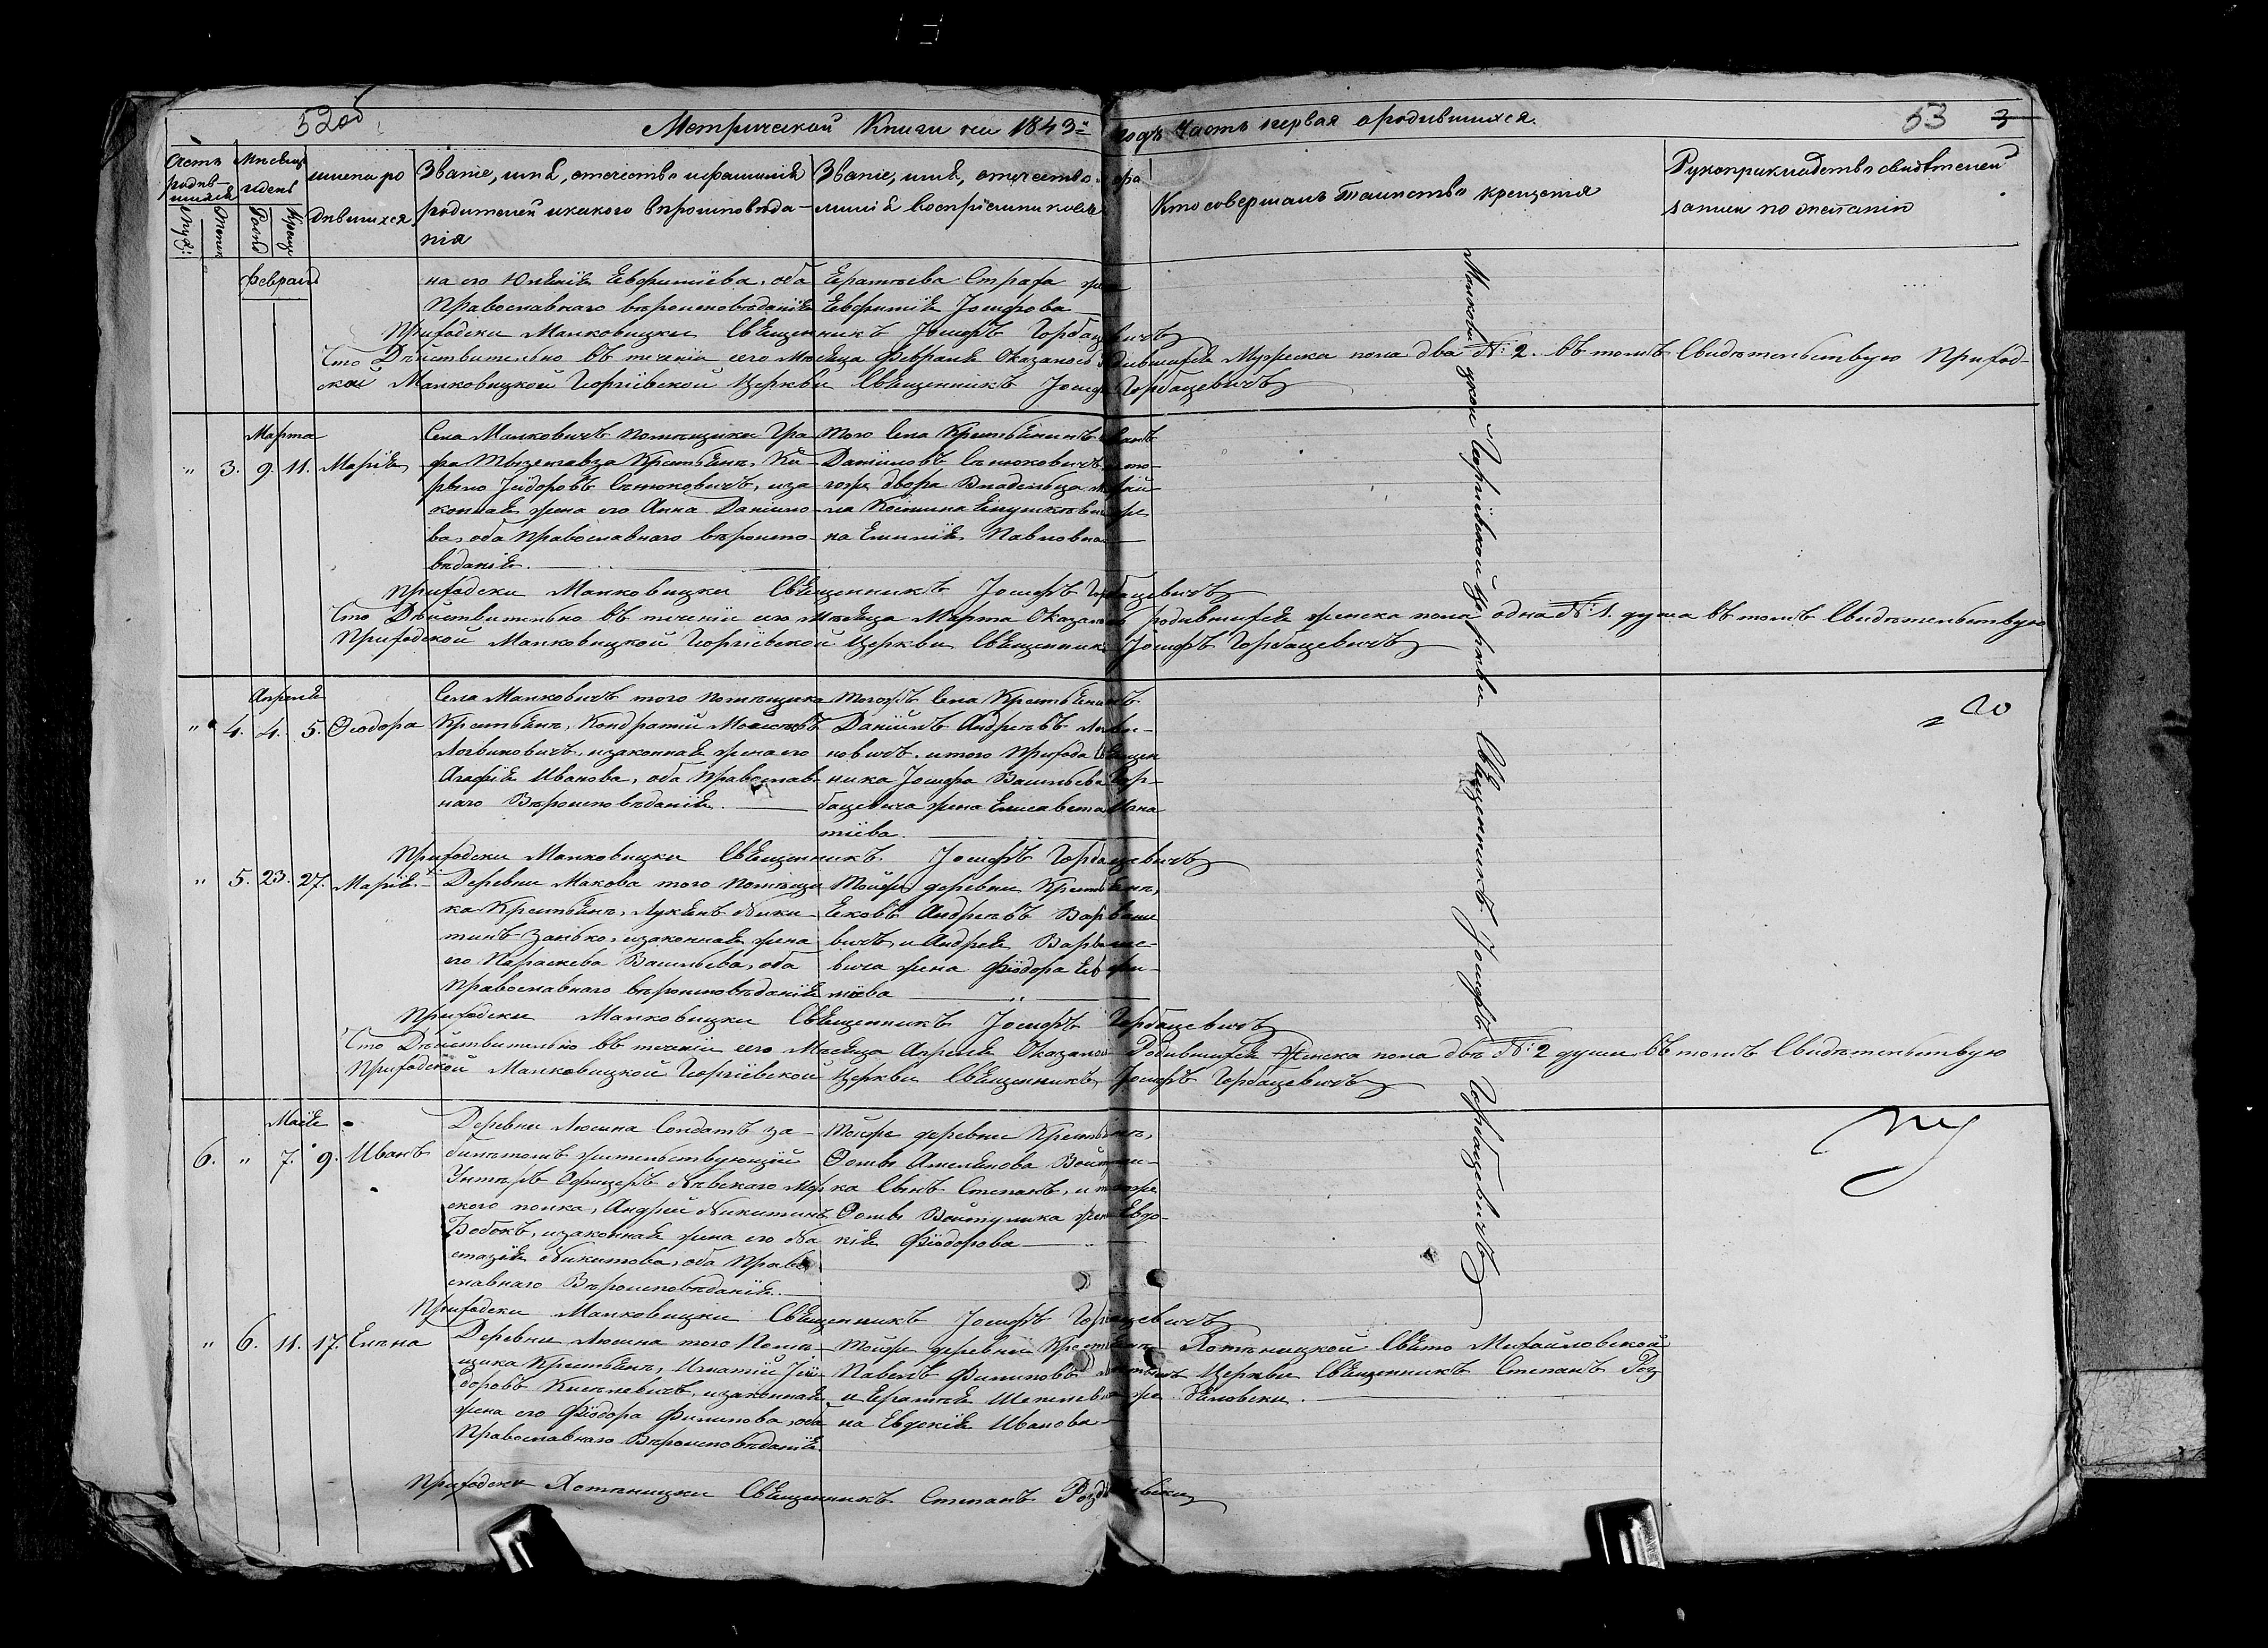 52об
Метрической Книги на 1843й годъ Часть первая о родившихся.
53 3
Счетъ родившихся
Муж:
Женск
Мѣсяцъ и день
Рожд
Крещ
имена родившихся
Званіе, имя, отечество и фамилія
родителей и какого вѣроисповѣда-
нія
Званіе, имя, отечество и фа
милія воспріемниковъ
Кто совершалъ Таинство крещенія
Рукоприкладство свидѣтелей
записи по желанію
Февраля
на его Евфиміева, оба
Православнаго вѣроисповѣданія
жена
Евфимія Іосифова
Приходски Малковицки Священникъ Іосифъ Горбацевичъ
Что Дѣйствительно въ теченіи сего Мѣсяца Февраля Оказалось Родившихся Мужеска пола два № 2. въ томъ Свидѣтельствую Приход-
ской Малковицкой Георгіевской Церкви Священникъ Іосифъ Горбацевичъ
Марта
" 3. 9. 11. Марія
Села Малковичъ помѣщика Гра
фа Крестьянъ, Ки-
рыло Ісидоровъ Сенюковичъ, и за
конная жена его Анна Данило
ва, оба Православнаго вѣроиспо-
вѣданія.
Того Села Крестьянинъ Иванъ
Даниловъ Сенюковичъ и то-
гожъ двора Владельца
жe
на Емилія Павловна
Приходски Малковицки Священникъ Іосифъ Горбацевичъ
Что Дѣйствительно въ теченіи сего Мѣсяца Марта Оказалось родившихся женска пола одна № 1. душа въ томъ Свидѣтельствую
Приходской Малковицкой Георгіевской Церкви Священникъ Іосифъ Горбацевичъ
Апреля
" 4. 4. 5. Ѳеодора
Села Малковичъ того помѣщика
Крестьянъ, Кондратій
Логвиновичъ, и законная жена его
Агафія Иванова, оба Православ-
наго Вѣроисповѣданія.
Тогожъ Села Крестьянинъ
Даніилъ Андреевъ Логви-
новичъ, и того Прихода Священ
ника Іосифа Васильева Гор-
бацевича жена Елисавета Игна
тіева.
20
Приходски Малковицки Священникъ Іосифъ Горбацевичъ
" 5. 23. 27. Марія.
Деревни Макова того помѣщи
ка Крестьянъ, Лукянъ Ники-
тинъ Занько, и законная жена
его Параскева Васильева, оба
Православнаго вѣроисповѣданія
Тойже деревни Крестьянъ,
Яковъ Андреевъ Варваше
вичъ, и Андрея Варваше-
вича жена Ѳіодора Евфи-
міева
Приходски Малковицки Священникъ Іосифъ Горбацевичъ
Что Дѣйствительно въ теченіи сего Мѣсяца Апреля Оказалось Родившихся Женска пола двѣ № 2 души въ томъ Свидѣтельствую
Приходской Малковицкой Георгіевской Церкви Священникъ Іосифъ Горбацевичъ
Маія
6. " 7. 9. Иванъ
Деревни Люсина Солдатъ за-
билетомъ жительствующій
Унтеръ Офицеръ Невскаго Мор
скаго полка, Андрей Никитинъ
Бобокъ, и законная жена его На
стазія Никитова, оба Право
славнаго Вѣроисповѣданія.
Тойже деревни Крестьянъ,
Ѳомы Амелянова Войтули-
ка Сынъ Степанъ, и тогоже
Ѳомы Войтулика жена Евдо-
кія Ѳіодорова
Приходски Малковицки Священникъ Іосифъ Горбацевичъ
" 6. 11. 17. Елена
Деревни Люсина того Помѣ-
щика Крестьянъ, Игнатій Іси
доровъ Киселевичъ, и законная
жена его Ѳіодора Филипова, оба
Православнаго Вѣроисповѣданія
Тойже деревни Крестьянъ
Павелъ Филиповъ
и же
на Евдокія Иванова
Хотыницкой Свято Михайловской
Церкви Священникъ Степанъ Роз
дяловски.
Приходски Хотыницки Священникъ Степанъ Роздяловски
Малковицкой Георгіевской Церкви Священникъ Іосифъ Горбацевичъ